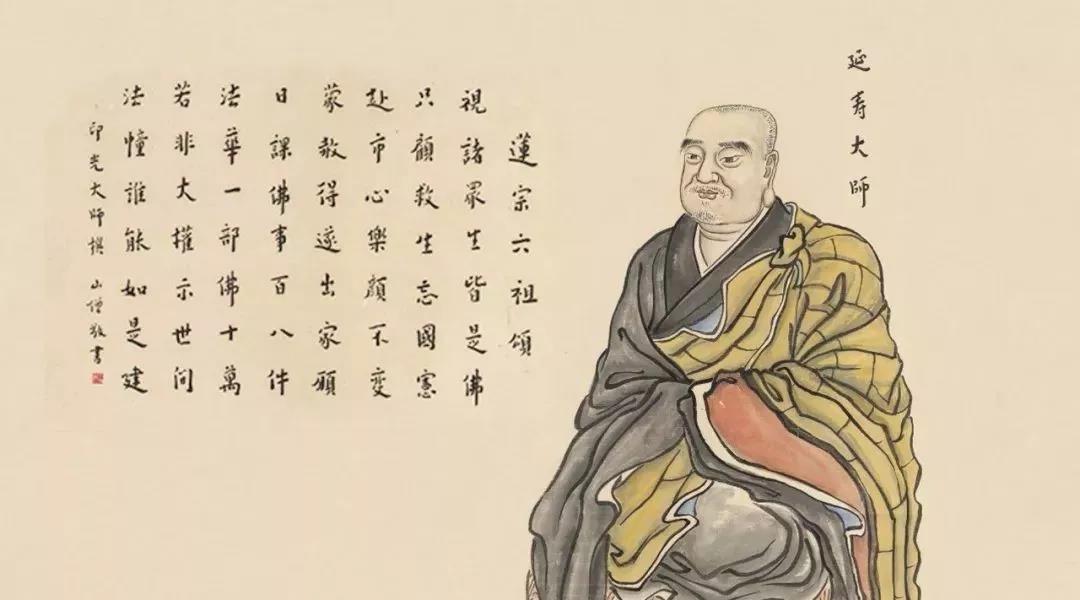 延寿大師
蓮宗六祖頌
視諸眾生皆是佛
只顧救生忘國憲
赴市心樂顏不變
蒙赦得遂出家願
日課佛事百八件
法華一部佛十萬
若非大權示世间
法幢誰能如是建
印光大師撰 山僧敬書